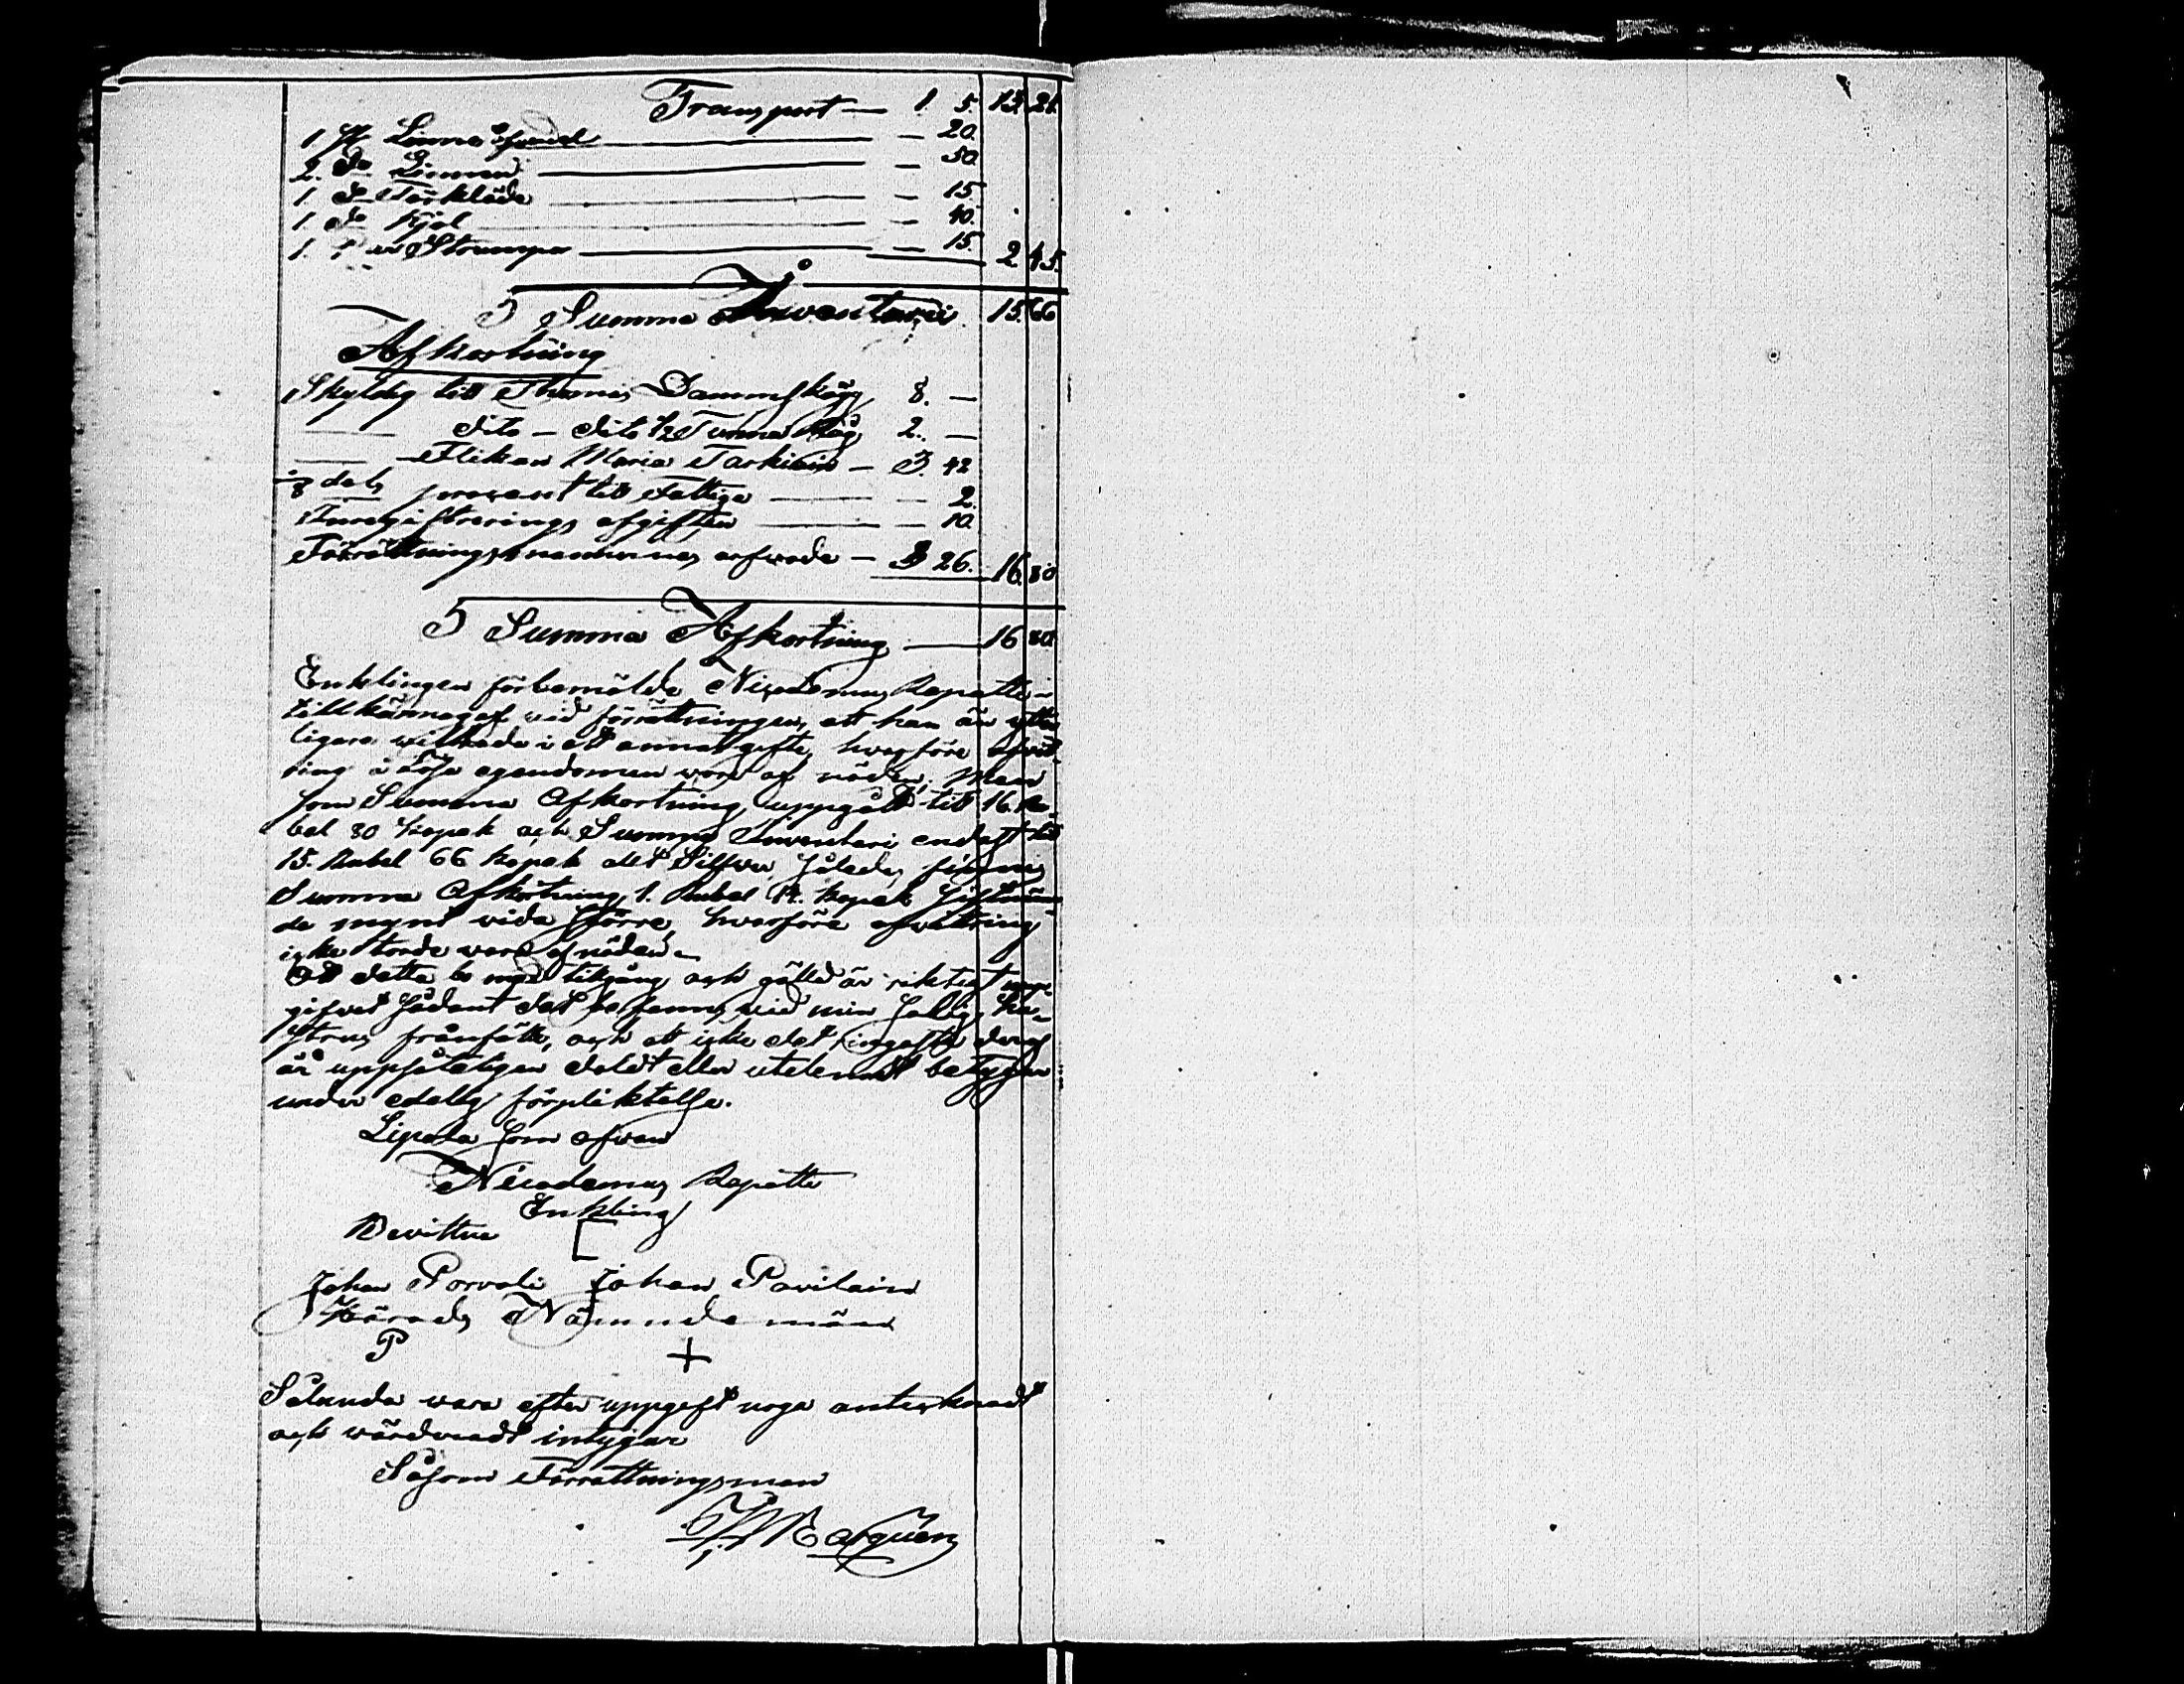 Transport — 1. 5. 13. 21.
1 st Linne — 20.
2. do Linnen — 50.
1 do Förkläde — 15
1. do Kjol — 40.
1. Par Strumpor — 15. 2 45.
S Summa Inventarii 15. 66
Afkortning
Skyldig till Thomas Dammskägg 8. —
dito — dito ½ Tunna Råg 2. —
— Flikan Maria Tarkiain — 3. 42
⅛ dels procent till Fattige — 2.
Inregistrerings afgiften — 10.
Förrättningsmännernas arfvode — 3 26. 16. 80
S Summa Afkortning — 16 80.
Enklingen förbemälde Nicodemus Repatti
tillkännagaf vid förrättningen, att han är ytter
ligare i ett annat gifte, hvarföre afvitt
ring i egendomen vore af nöden, Men
som Summa Afkortning uppgått till 16. Ru
bel 80 kopek och Summa Inventarii endast till
15. Rubel 66 kopek allt Silfver, således finnes
Summa Afkortning 1. Rubel 14. kopek
de mynt vida större, hvarföre afvittring
icke torde vara af nöden.
Att detta bo med tillgång och gäld är riktigt upp
gifvet sådant det befanns vid min Salig Hu
strus frånfälle, och att icke det ringaste deraf
är uppsåteligen doldt eller utelemnadt betygar
under edelig förpliktelse.
Lipola som ofvan
Nicodemus Repatti
Enkling
Bevittna [
Johan Porvali Johan Pavilain
Härads Nämndemän
P +
Sålunda vara efter uppgift noga antecknadt
och värderadt intygar
Såsom Förrättningsman